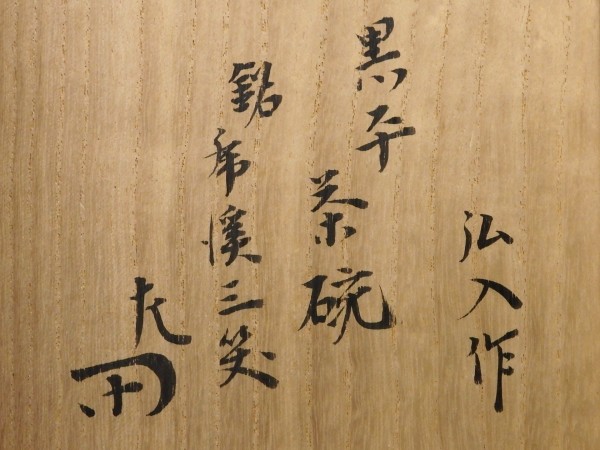 弘入作
黒平
茶碗
銘 虎渓三笑
左